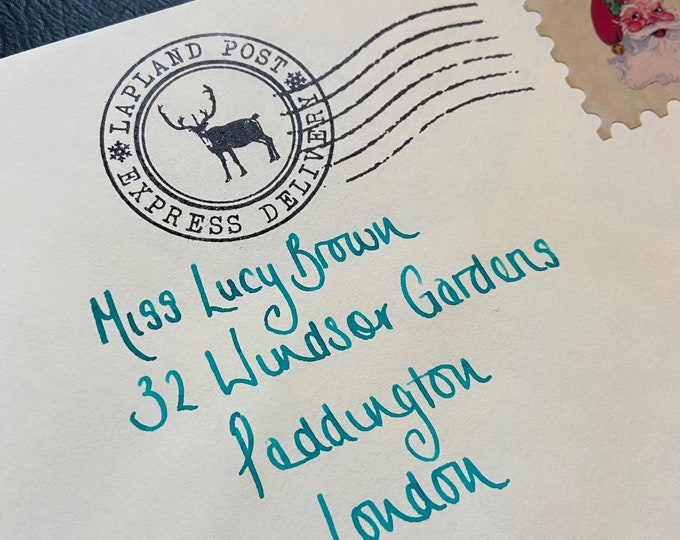 LAPLAND POST
EXPRESS DELIVERY
Miss Lucy Brown
32 Windsor Gardens
Paddington
London